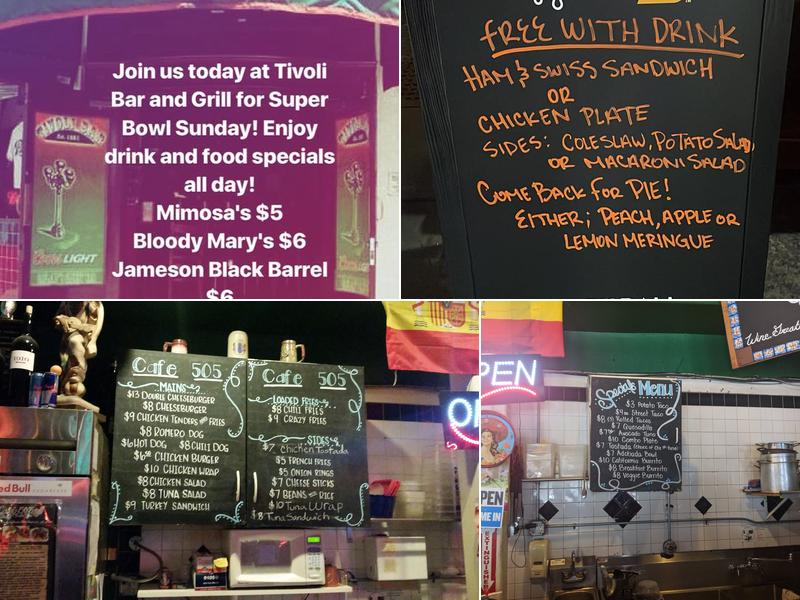 Join us today at Tivoli
Bar and Grill for Super
Bowl Sunday! Enjoy
drink and food specials
all day!
Mimosa's $5
Bloody Mary's $6
Jameson Black Barrel
$6
LIGHT
FREE WITH DRINK
HAM & SWISS SANDWICH
OR
CHICKEN PLATE
SIDES: COLESLAW, POTATO SALAD,
OR MACARONI SALAD
COME BACK FOR PIE!
EITHER; PEACH, APPLE OR
LEMON MERINGUE
Cafe 505
MAINS
$13 DOUBLE CHEESEBURGER
$8 CHEESEBURGER
$9 CHICKEN TENDERS AND FRIES
$8 ROMERO DOG
$6 HOT DOG $8 CHILI DOG
CHICKEN BURGER
$10 CHICKEN WRAP
$8 CHICKEN SALAD
$8 TUNA SALAD
$9 TURKEY SANDWICH
Cafe 505
LOADED FRIES
$8 CHILI FRIES
$9 CRAZY FRIES
SIDES
$7 Chicken Tostada
$5 FRENCH FRIES
$5 ONION RINGS
$7 CHEESE STICKS
$7 BEANS AND RICE
$10 Tuna Wrap
$8 Tuna Sandwich
Red Bull
OP
PEN
Specials Menu
$3 Potato Taco
Street Taco
Rolled Tacos
$7 Quesadilla
Avocado Tuna
$10 Combo Plate
$7 Tostada
$7 Adobada Bowl
$10 California Burrito
$8 Breakfast Burrito
$8 Veggie Burrito
OPEN
COME IN
EXTINGUISHER
Wine